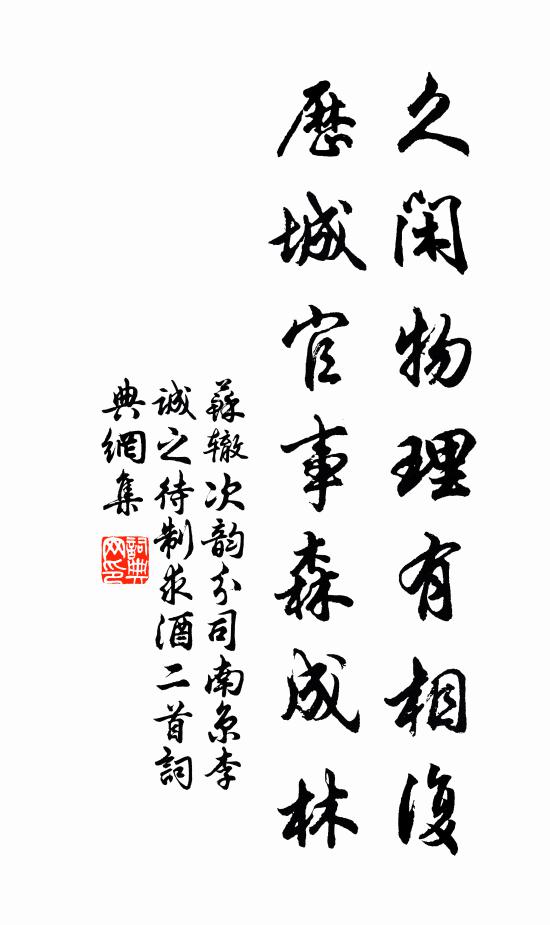 久閑物理有相復
歷城官事森成林
蘇辙次韵分司南京李
誠之待制求酒二首詞
典網集
詞典網印